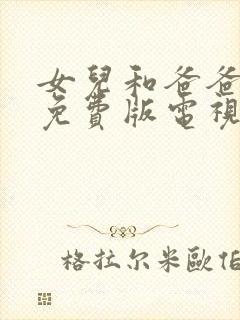 女兒和爸爸
免費版電視
格拉尔米歐伯